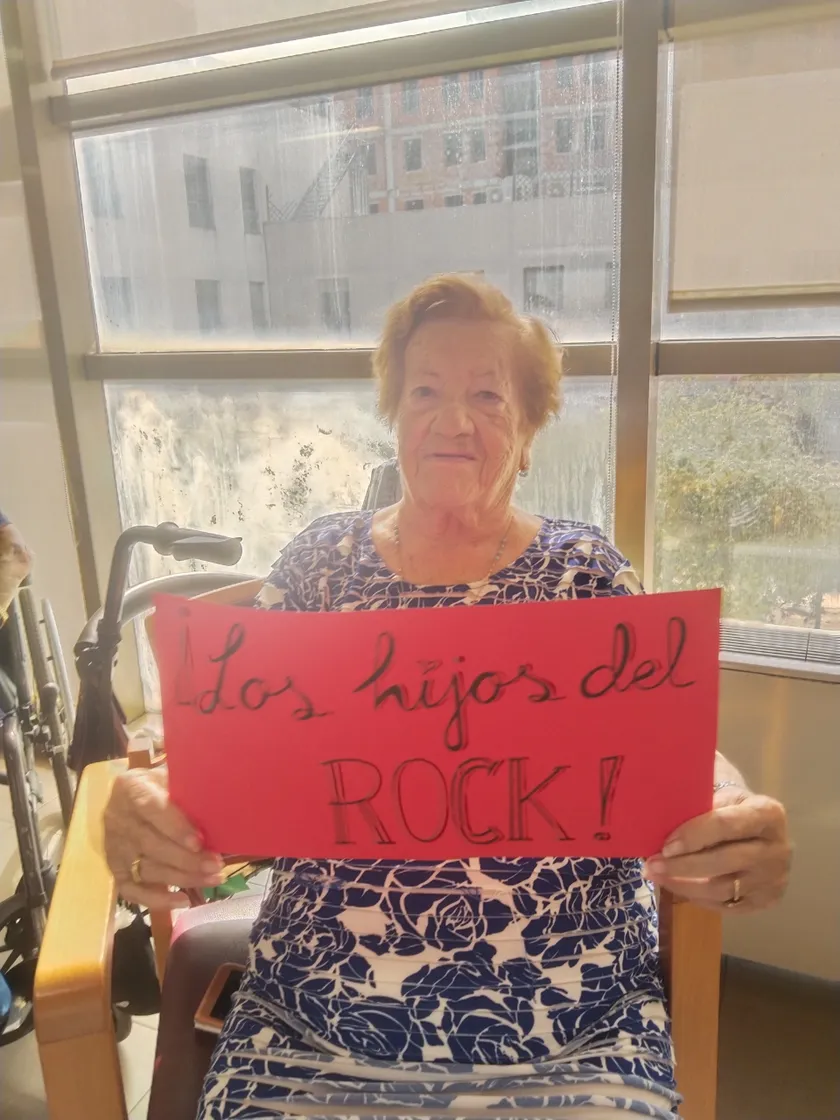 ¡Los hijos del
ROCK!